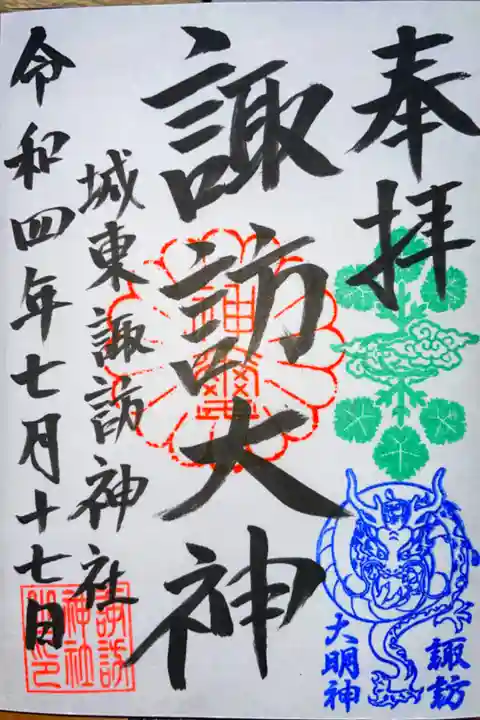 奉拝
諏訪
大明神
諏訪大神
城東諏訪神社
諏訪
神社
令和四年七月十七日